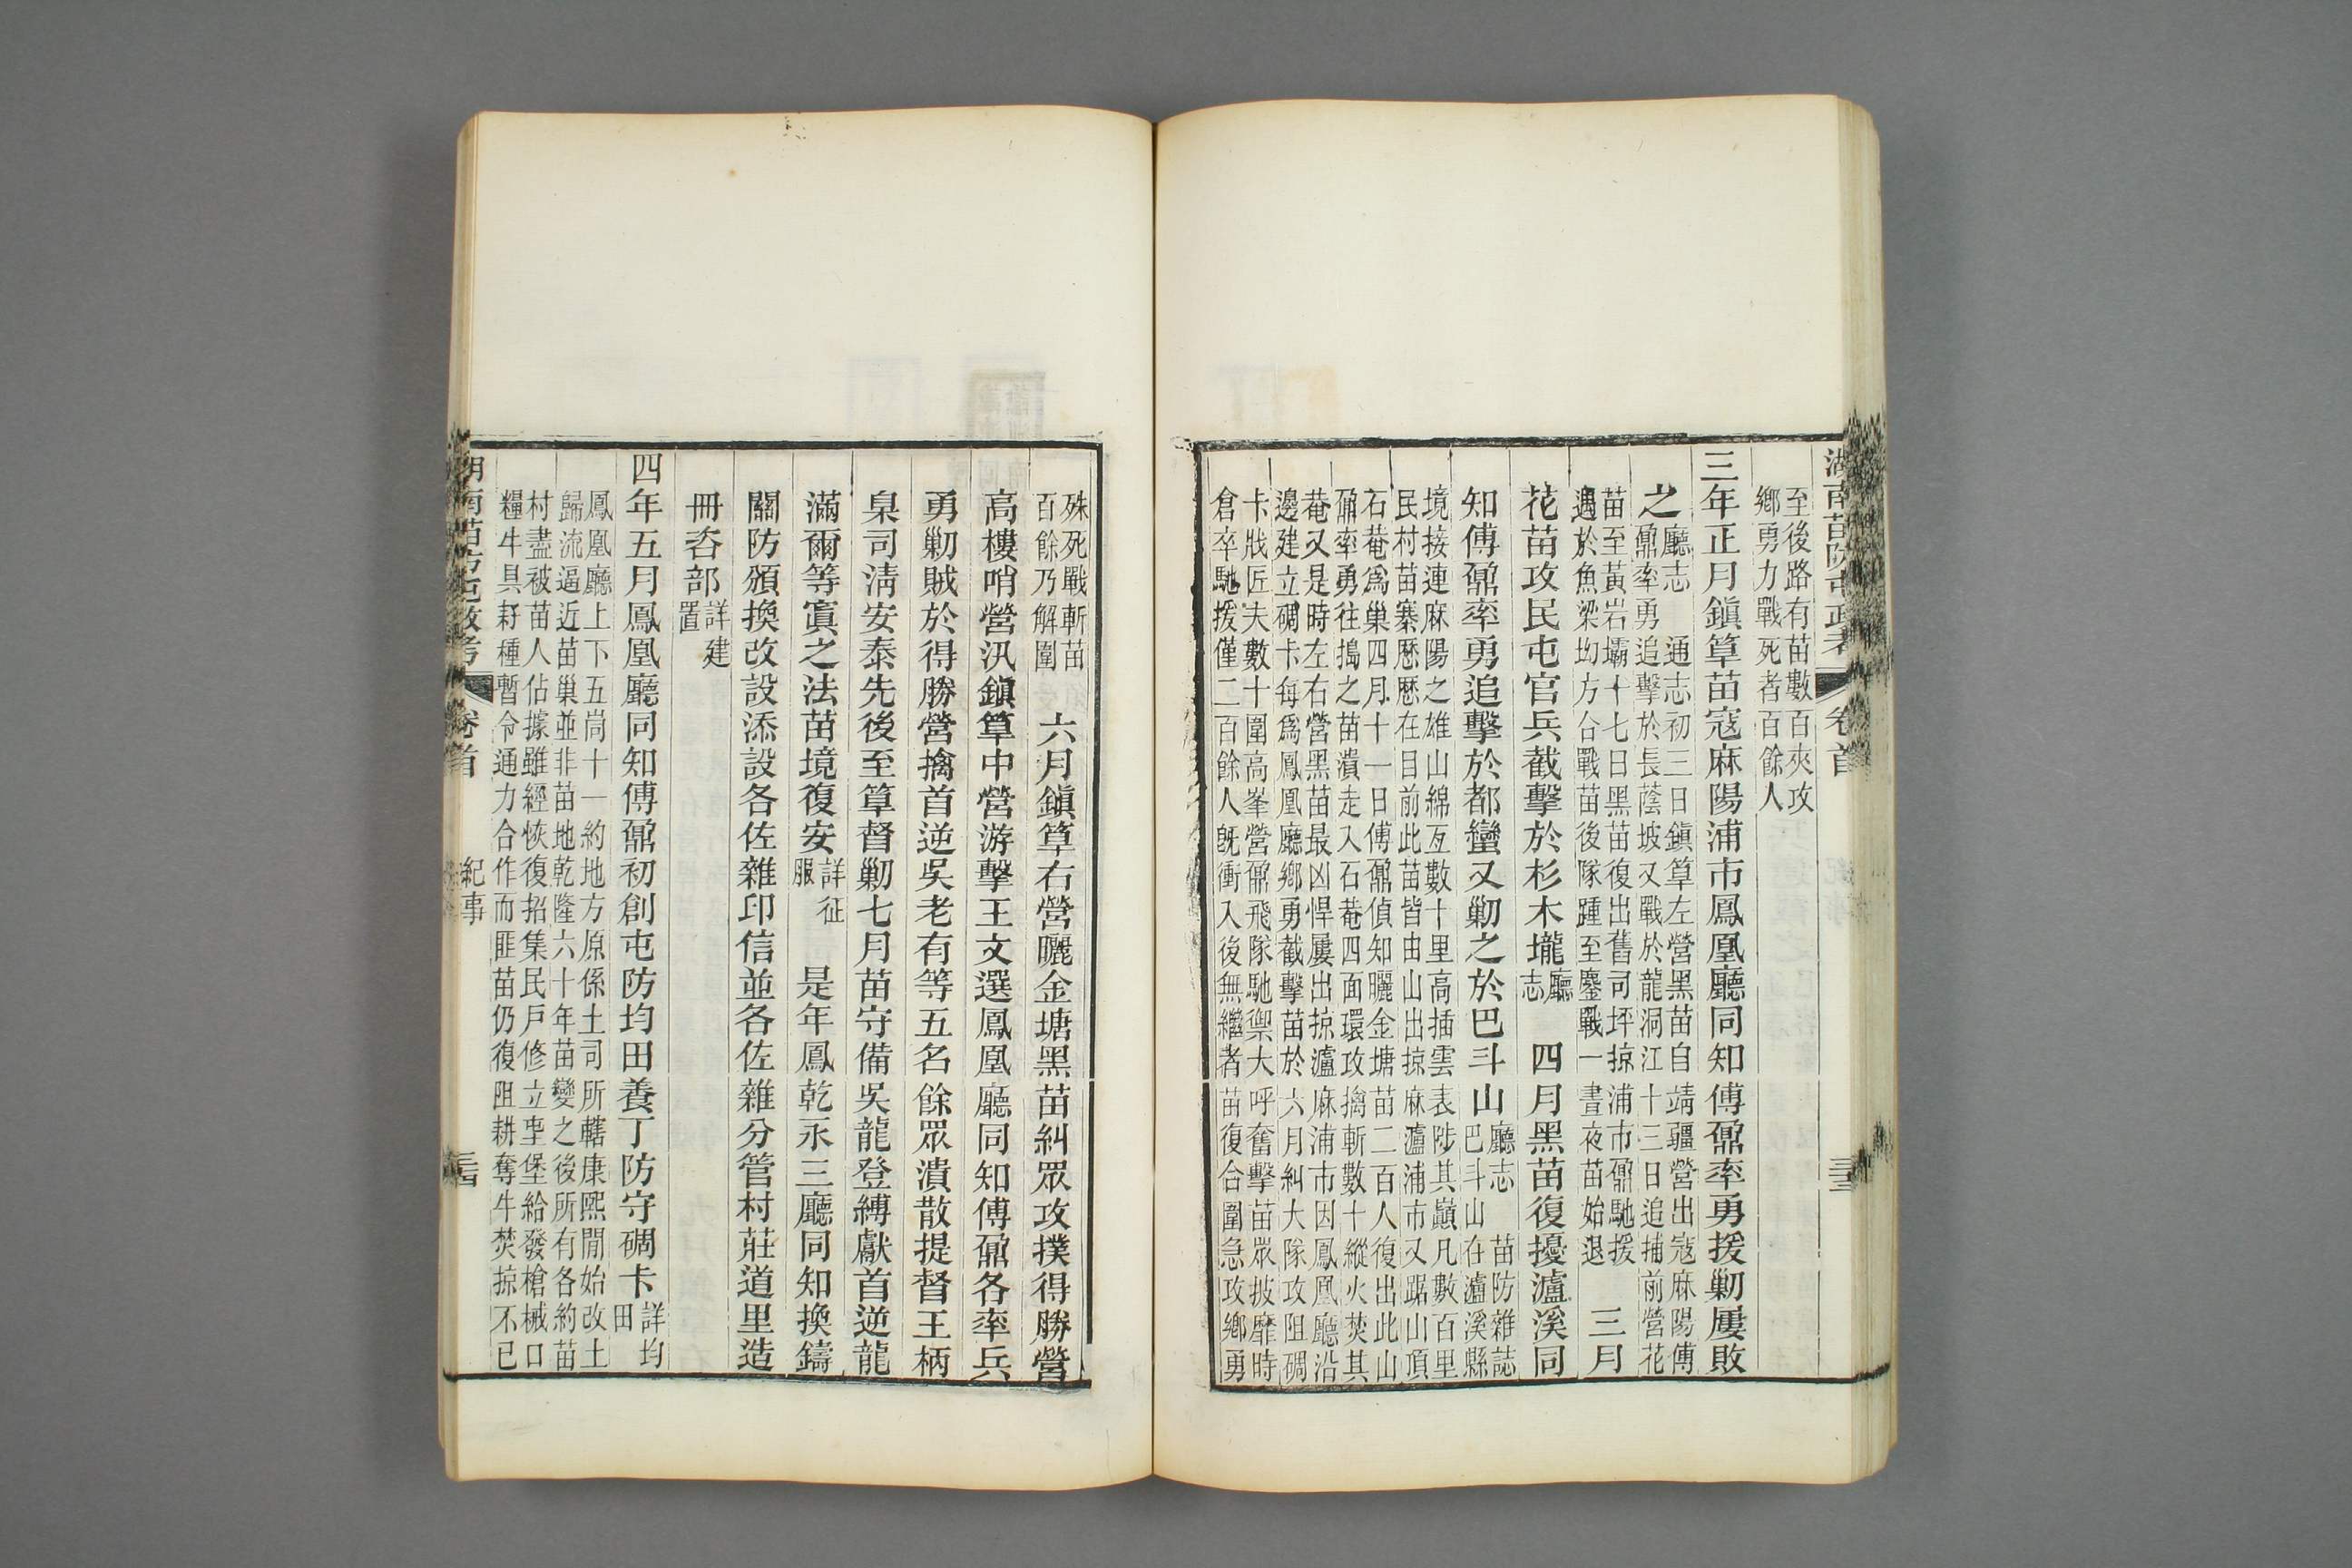 湖南苗防屯政考 卷首 三十三
至後路有苗數百夾攻
鄉勇力戰死者百餘人
三年正月鎮筸苗寇麻陽浦市鳳凰廳同知傅鼐率勇援剿屢敗
之
廳志 通志初三日鎮筸左營黑苗自靖疆營出寇麻陽傅
鼐率勇追擊於長蔭坡又戰於龍洞江十三日追捕前營花
苗至黃岩壩十七日黑苗復出舊司坪掠浦市鼐馳援
遇於魚梁坳方合戰苗後隊踵至鏖戰一晝夜苗始退
三月
花苗攻民屯官兵截擊於杉木壠
廳
志
四月黑苗復擾瀘溪同
知傅鼐率勇追擊於都蠻又剿之於巴斗山
廳志 苗防雜誌
巴斗山在瀘溪縣
境接連麻陽之雄山綿亙數十里高插雲表陟其巔凡數百里
民村苗寨歷歷在目前此苗皆由山出掠麻瀘浦市又踞山頂
石菴爲巢四月十一日傅鼐偵知曬金塘苗二百人復出此山
鼐率勇往搗之苗潰走入石菴四面環攻擒斬數十縱火焚其
菴又是時左右營黑苗最凶悍屢出掠瀘麻浦市因鳳凰廳沿
邊建立碉卡每爲鳳凰廳鄉勇截擊苗於六月糾大隊攻阻碉
卡戕匠夫數十圍高峯營鼐飛隊馳禦大呼奮擊苗眾披靡時
倉卒馳援僅二百餘人旣衝入後無繼者苗復合圍急攻鄉勇
殊死戰斬苗
百餘乃解圍
六月鎮筸右營曬金塘黑苗糾眾攻撲得勝營
高樓哨營汛鎮筸中營游擊王文選鳳凰廳同知傅鼐各率兵
勇剿賊於得勝營擒首逆吳老有等五名餘眾潰散提督王柄
臬司淸安泰先後至筸督剿七月苗守備吳龍登縛獻首逆龍
滿爾等寘之法苗境復安
詳征
服
是年鳳乾永三廳同知換鑄
關防頒換改設添設各佐雜印信並各佐雜分管村莊道里造
冊咨部
詳建
置
四年五月鳳凰廳同知傅鼐初創屯防均田養丁防守碉卡
詳均
田
鳳凰廳上下五峝十一約地方原係土司所轄康熙間始改土
歸流逼近苗巢並非苗地乾隆六十年苗變之後所有各約苗
村盡被苗人佔據雖經恢復招集民戶修立堡給發槍械口
糧牛具籽種暫令通力合作而匪苗仍復阻耕奪牛焚掠不已
湖南苗防屯政考 卷首 紀事 三十四